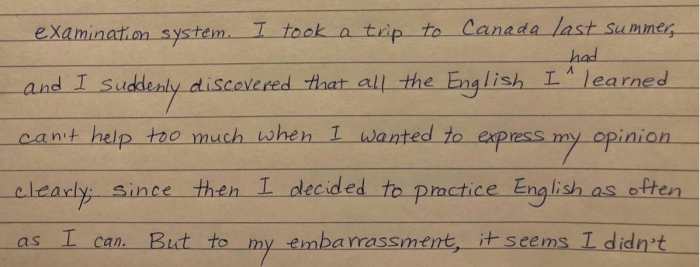 examination system. I took a trip to Canada last summer,
and I suddenly discovered that all the English I had learned
can't help too much when I wanted to express my opinion
clearly; since then I decided to practice English as often
as I can. But to my embarrassment, it seems I didn't